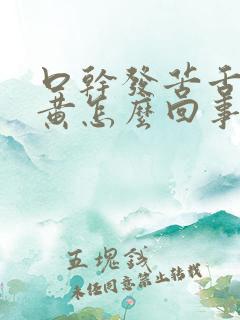 口幹發苦舌
黄怎麼回事
五塊錢
未经同意禁止转载